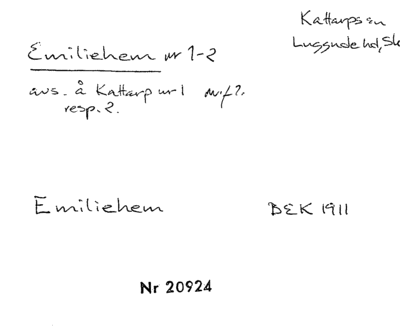 Kattarps sn
Luggude hd, Sk
Emiliehem nr 1-2
avs. å Kattarp nr 1
resp. 2.
Emiliehem BEK 1911
Nr 20924